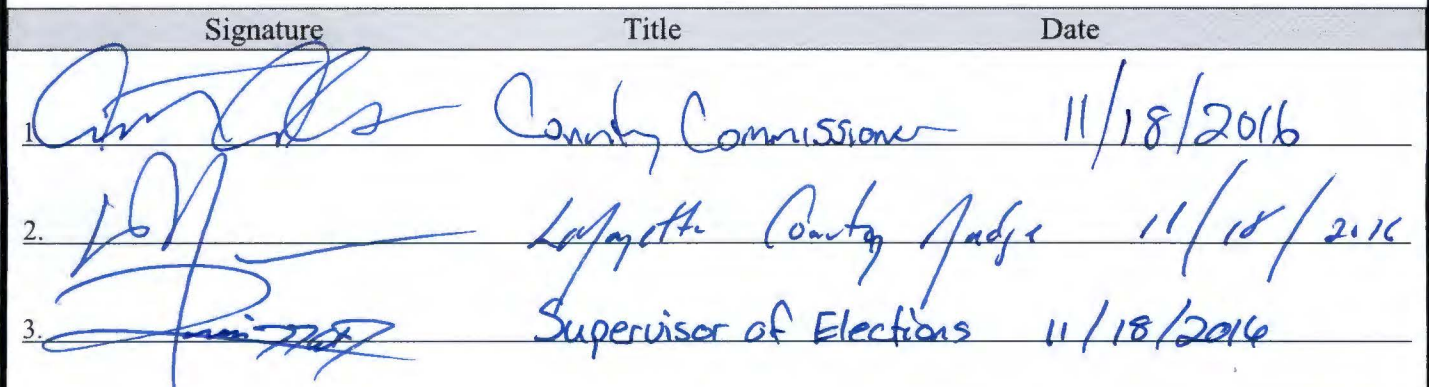 Signature Title Date
1. County Commissioner 11/18/2016
2. Lafayette County Judge 11/18/2016
3. Supervisor of Elections 11/18/2016